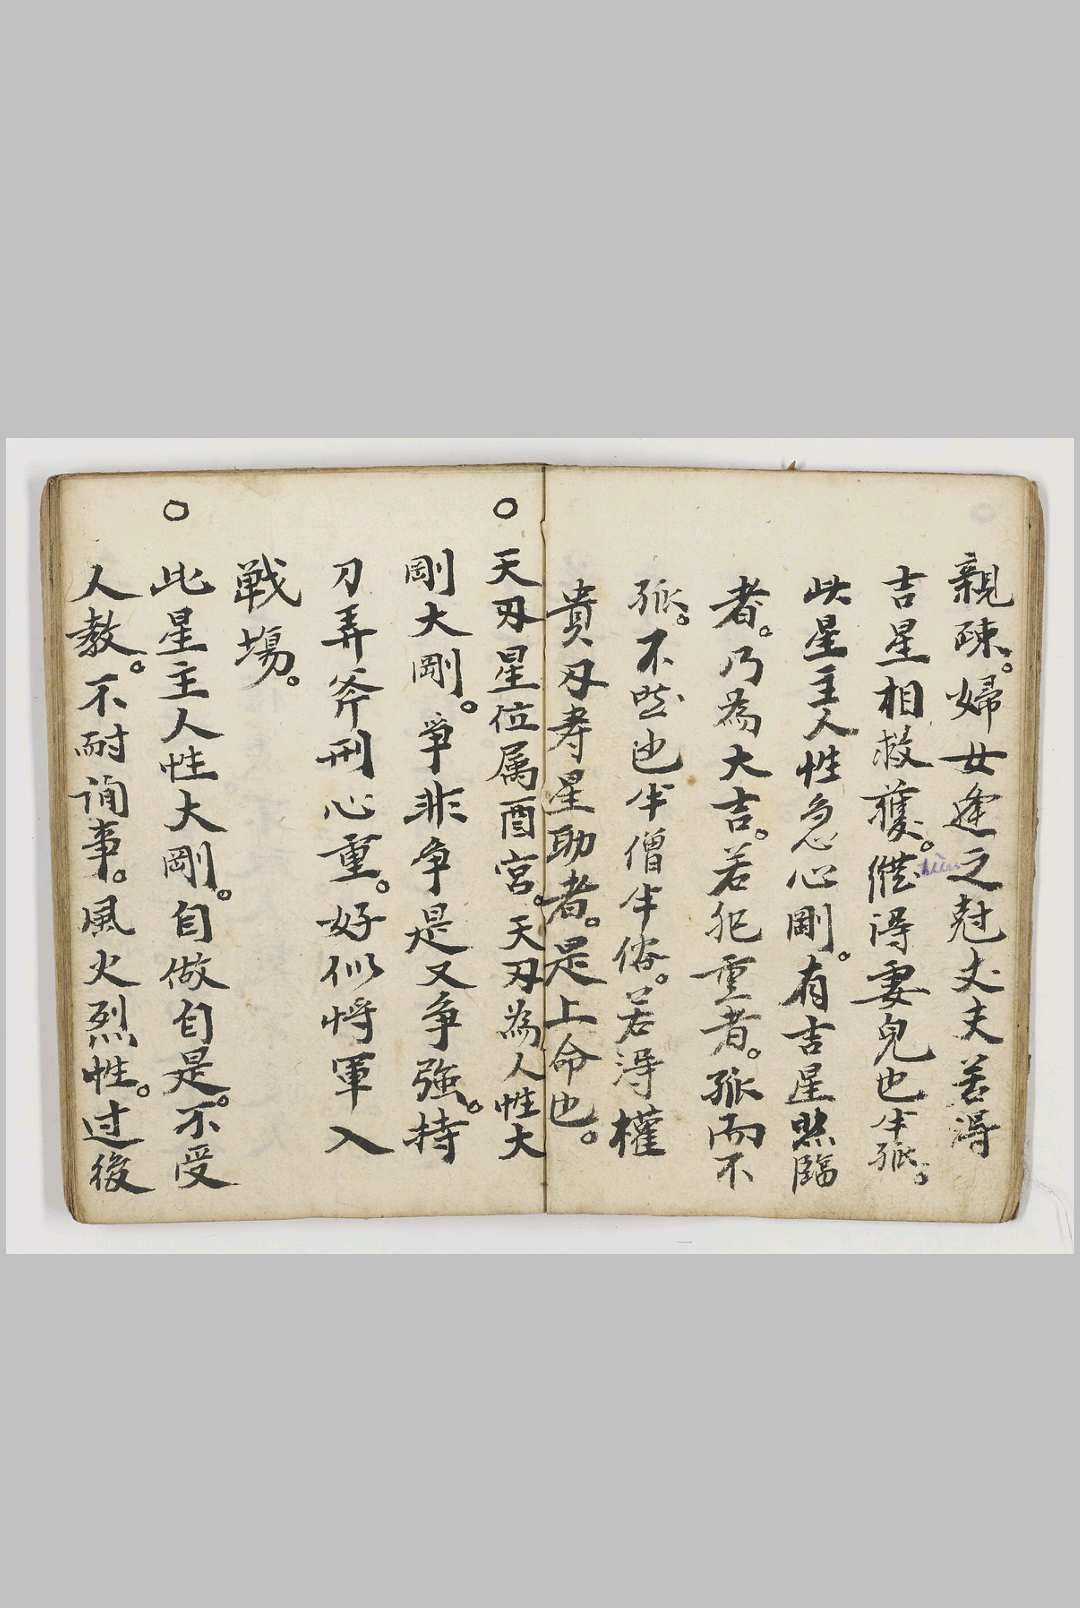 親疎。婦女逢之尅丈夫若得
吉星相救獲。縱得妻兒也半孤。
此星主人性急心剛。有吉星照臨
者。乃為大吉。若犯重者。孤而不
孤。不然也半僧半俗。若得權
貴刃寿星助者。是上命也。
○天刃星位属酉宮。天刃為人性大
剛大剛。爭非争是又争強。持
刀弄斧刑心重。好似将軍入
戦場。
○此星主人性大剛。自做自是。不受
人教。不耐事。風火烈性。过後